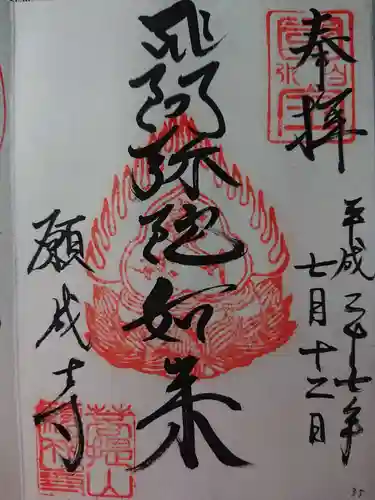 奉拝
平成二十七年
七月十二日
阿弥陀如来
願成寺
35